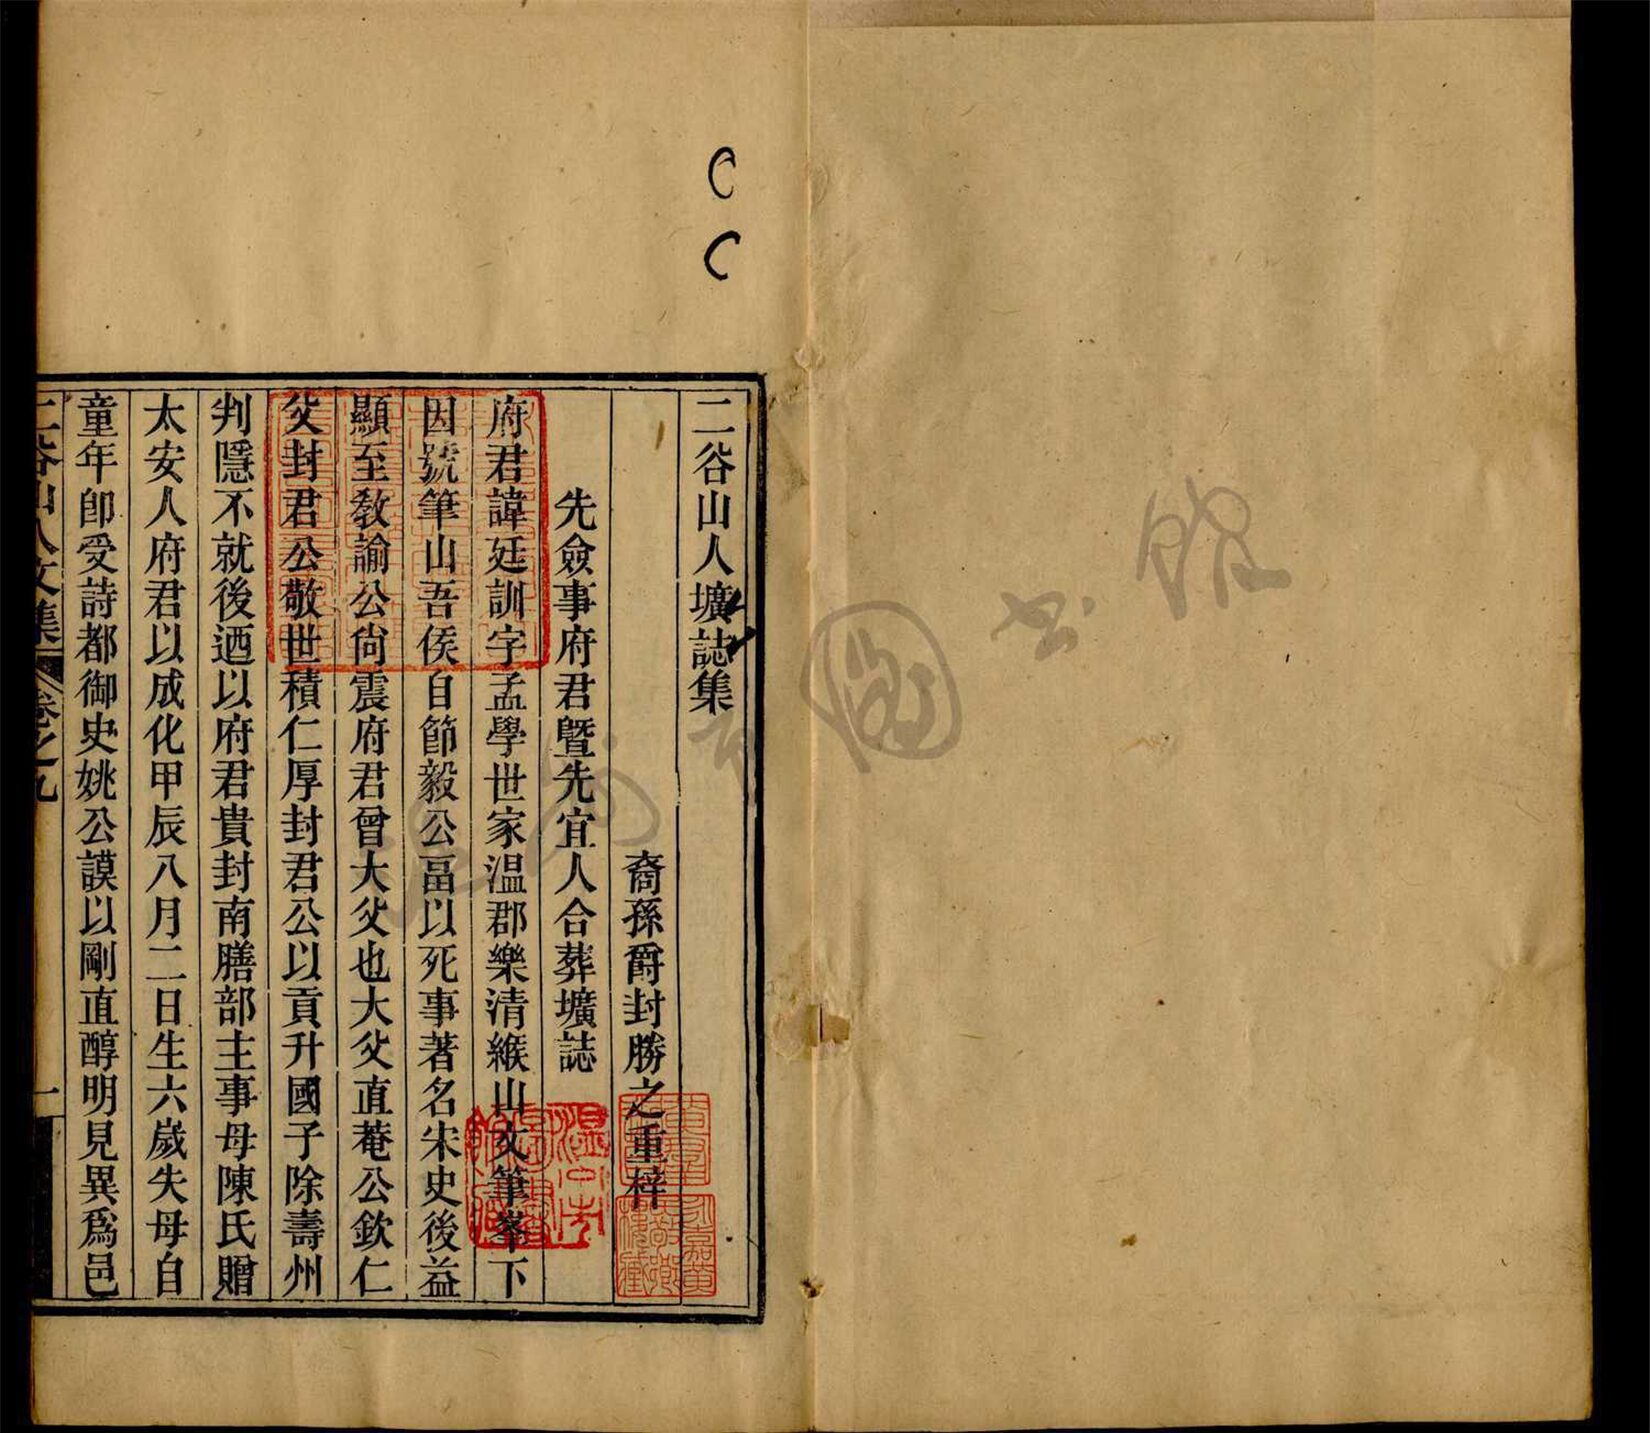 二谷山人壙誌集
裔孫爵封勝之重梓
先僉事府君曁先宜人合葬壙誌
府君諱廷訓字孟學世家温郡樂清緱山文筆峯下
因號筆山吾侯自節毅公畐以死事著名宋史後益
顯至敎諭公尙震府君曾大父也大父直菴公欽仁
父封君公敬世積仁厚封君公以貢升國子除壽州
判隱不就後迺以府君貴封南膳部主事母陳氏贈
太安人府君以成化甲辰八月二日生六歲失母自
童年卽受詩都御史姚公謨以剛直醇明見異爲邑
二谷山人文集 卷之九 一